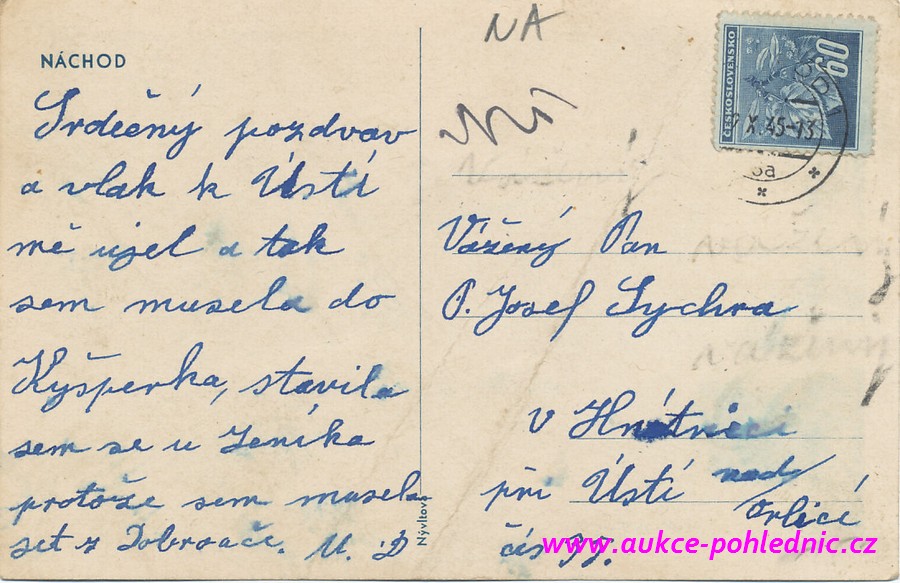 NA
NÁCHOD
Srdečný pozdrav
a vlak k Ústí
mě ujel a tak
sem musela do
Kyšperka, stavila
sem se u Jeníka
protože sem musela
set z Dobrouče. M. D
Nývltová
ČESKOSLOVENSKO
60
X. 45-13
Vážený Pan
P. Josef Sychra
v Hnátnici
při Ústí nad
Orlicí
čís 99.
www.aukce-pohlednic.cz